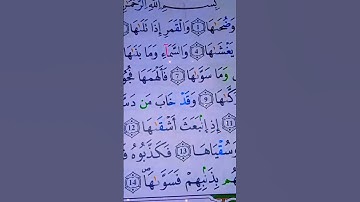 بِسْمِ اللَّهِ الرَّحْمَٰنِ
وَضُحَىٰهَا ١ وَالْقَمَرِ إِذَا تَلَىٰهَا
يَغْشَىٰهَا ٤ وَالسَّمَآءِ وَمَا بَنَىٰهَا
وَمَا سَوَّىٰهَا ٧ فَأَلْهَمَهَا فُجُو
كَّىٰهَا ٩ وَقَدْ خَابَ مَن دَسَّ
١١ إِذِ انۢبَعَثَ أَشْقَىٰهَا ١٢
وَسُقْيَاهَا ١٣ فَكَذَّبُوهُ فَ
هُم بِذَنۢبِهِمْ فَسَوَّىٰهَا ١٤